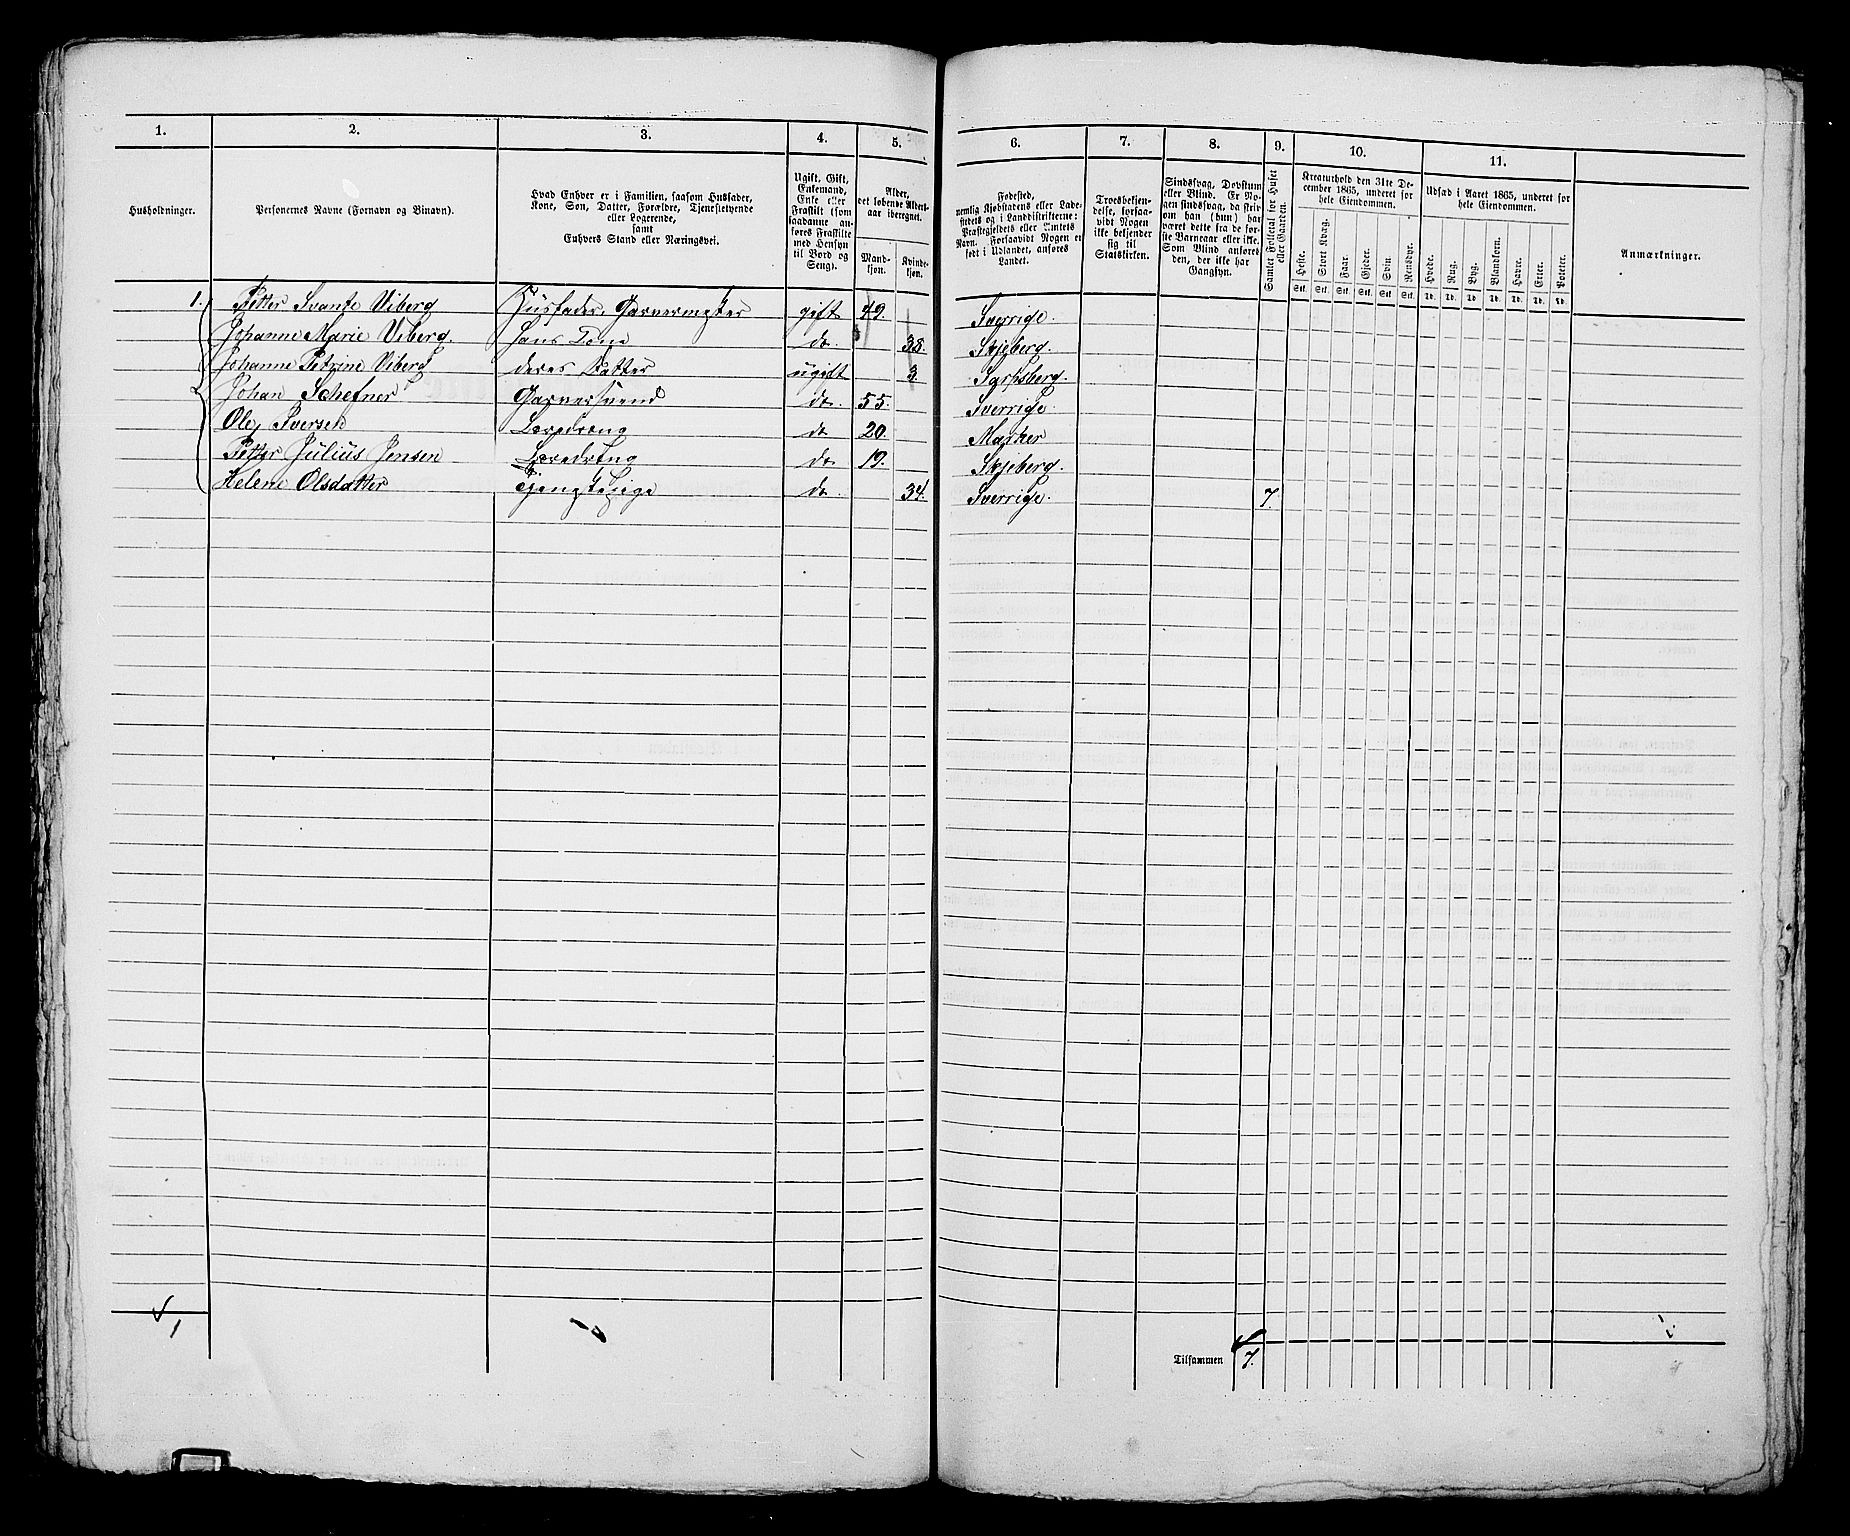 1. 2. 3. 4. 5. 6. 7. 8. 9. 10. 11.
Husholdninger.
Personernes Navne (Fornavn og Binavn).
Hvad Enhver er i Familien, saasom Husfader,
Kone, Søn, Datter, Forældre, Tjenestetyende
eller Logerende,
samt
Enhvers Stand eller Næringsvei.
Ugift, Gift,
Enkemand,
Enke eller
Fraskilt (som
saadanne an-
føres Fraskilte
med Hensyn
til Bord og
Seng).
Alder,
det løbende Alders-
aar iberegnet.
Mand-
kjøn.
Kvinde-
kjøn.
Fødested,
nemlig Kjøbstadens eller Lade-
stedets og i Landdistrikterne:
Præstegjeldets eller Amtets
Navn. Forsaavidt Nogen er
født i Udlandet, anføres
Landet.
Troesbekjen-
delse, forsaa-
vidt Nogen
ikke bekjender
sig til
Statskirken.
Sindssvag, Døvstum
eller Blind. Er No-
gen sindssvag, da skriv,
om han (hun) har
været dette fra de før-
ste Barneaar eller ikke.
Som Blind anføres
den, der ikke har
Gangsyn.
Samlet Folketal for Huset
eller Gaarden.
Kreaturhold den 31te De-
cember 1865, underet for
hele Eiendommen.
Heste. Stort Kvæg. Faar. Gjeder. Svin. Rensdyr.
Stk. Stk. Stk. Stk. Stk. Stk.
Udsæd i Aaret 1865, underet for
hele Eiendommen.
Hvede. Rug. Byg. Blandkorn. Havre. Erter. Poteter.
Td. Td. Td. Td. Td. Td. Td.
Anmærkninger.
1. Petter Svante Viberg Husfader, Garvermester gift 49. Sverrige.
Johanne Marie Viberg. hans Kone do. 38. Skjeberg.
Johanne Petrine Viberg deres Datter ugift 3. Sarpsberg.
Johan Schefner Garversvend do. 55. Sverrige.
Ole Iversen Læredreng do 20. Marker
Petter Julius Jensen Læredreng do 19. Skjeberg.
Helene Olsdatter Tjenestepige do. 34. Sverrige. 7.
1
Tilsammen 7.